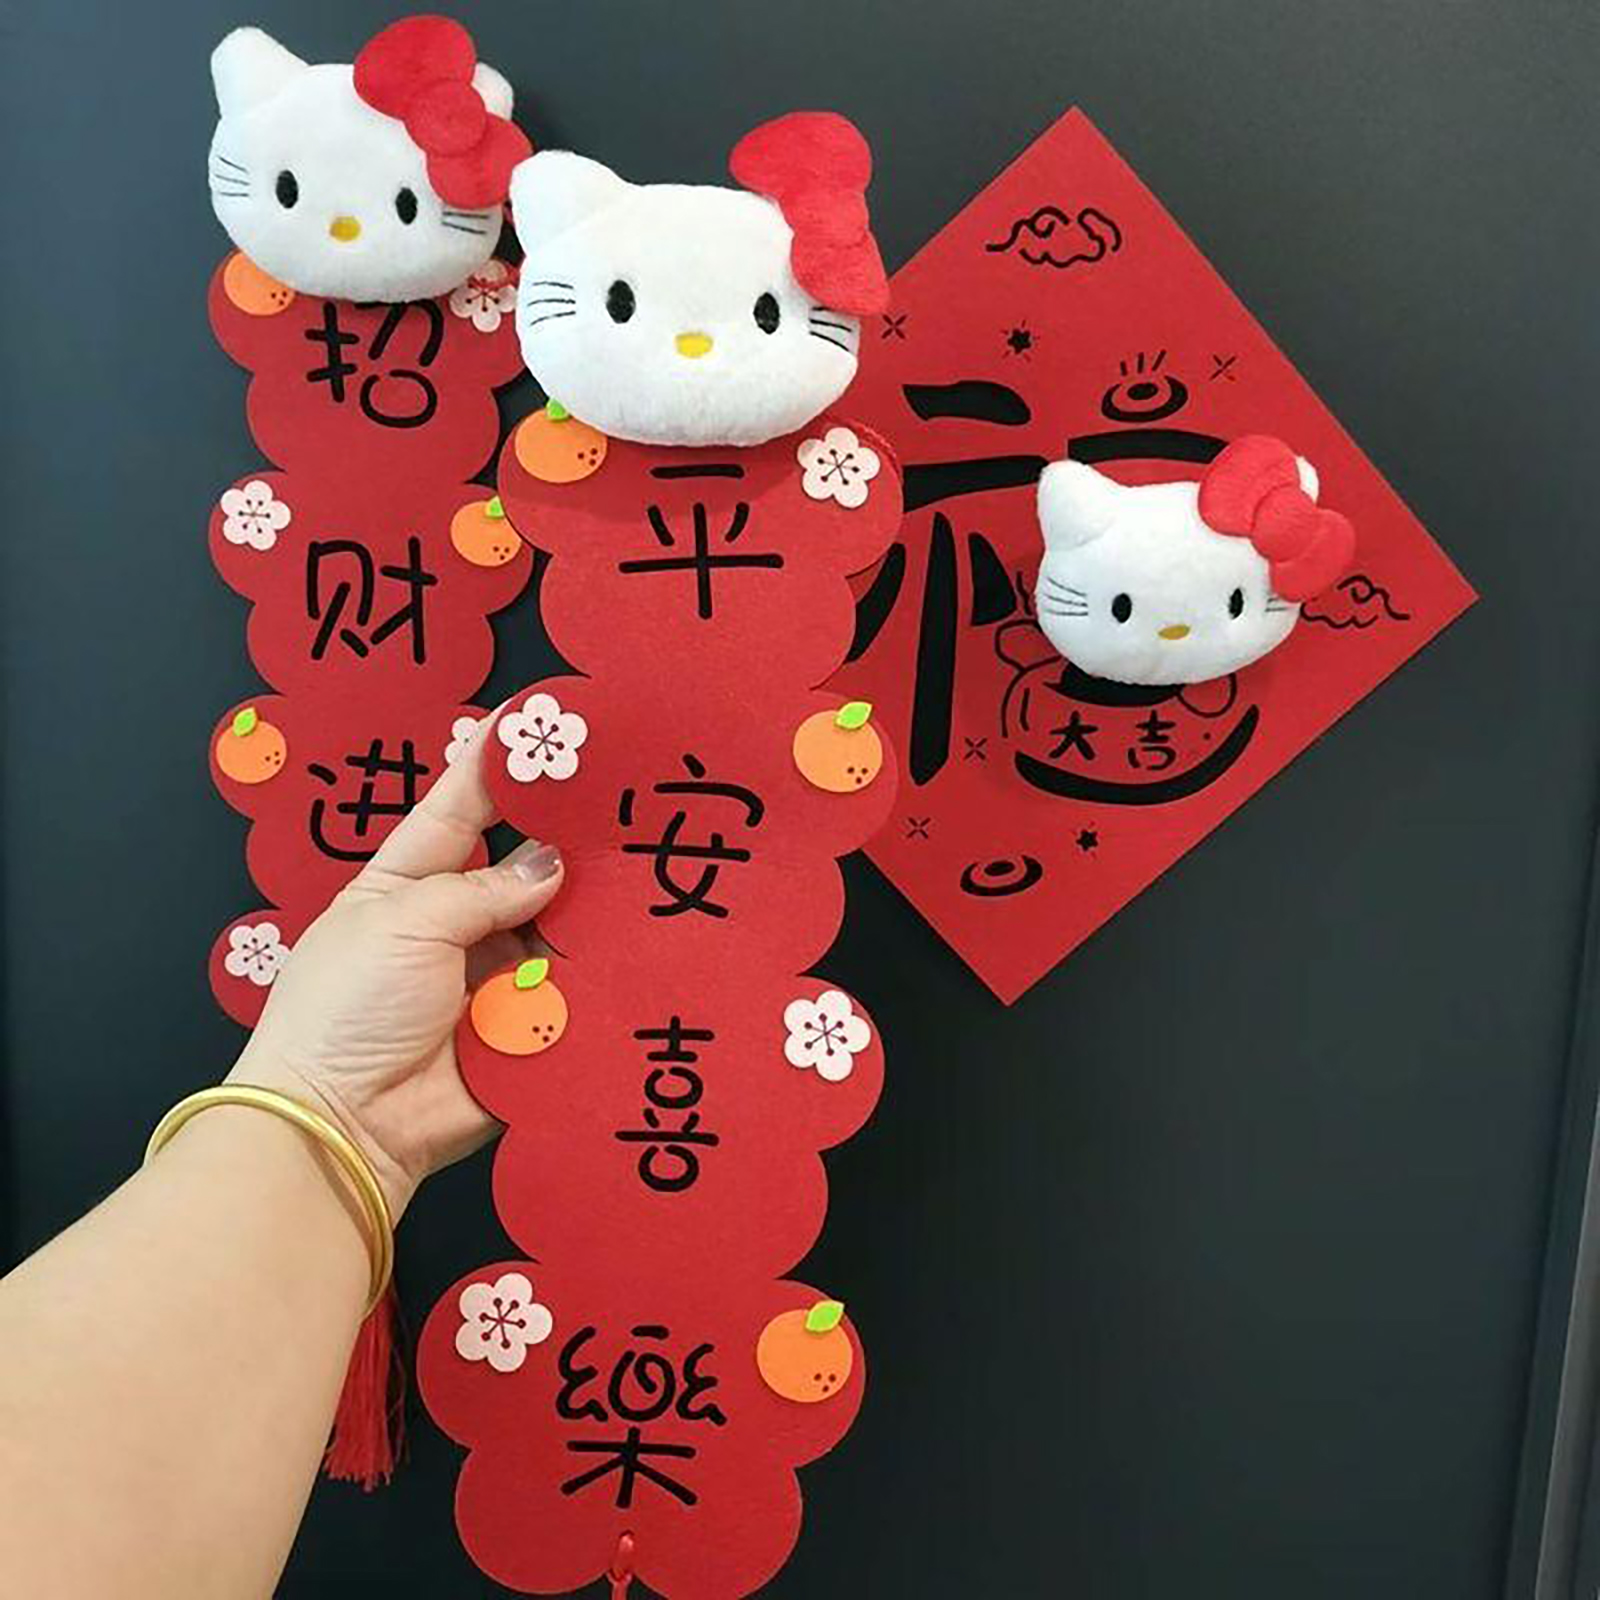 招财进
平安喜樂
福
大吉